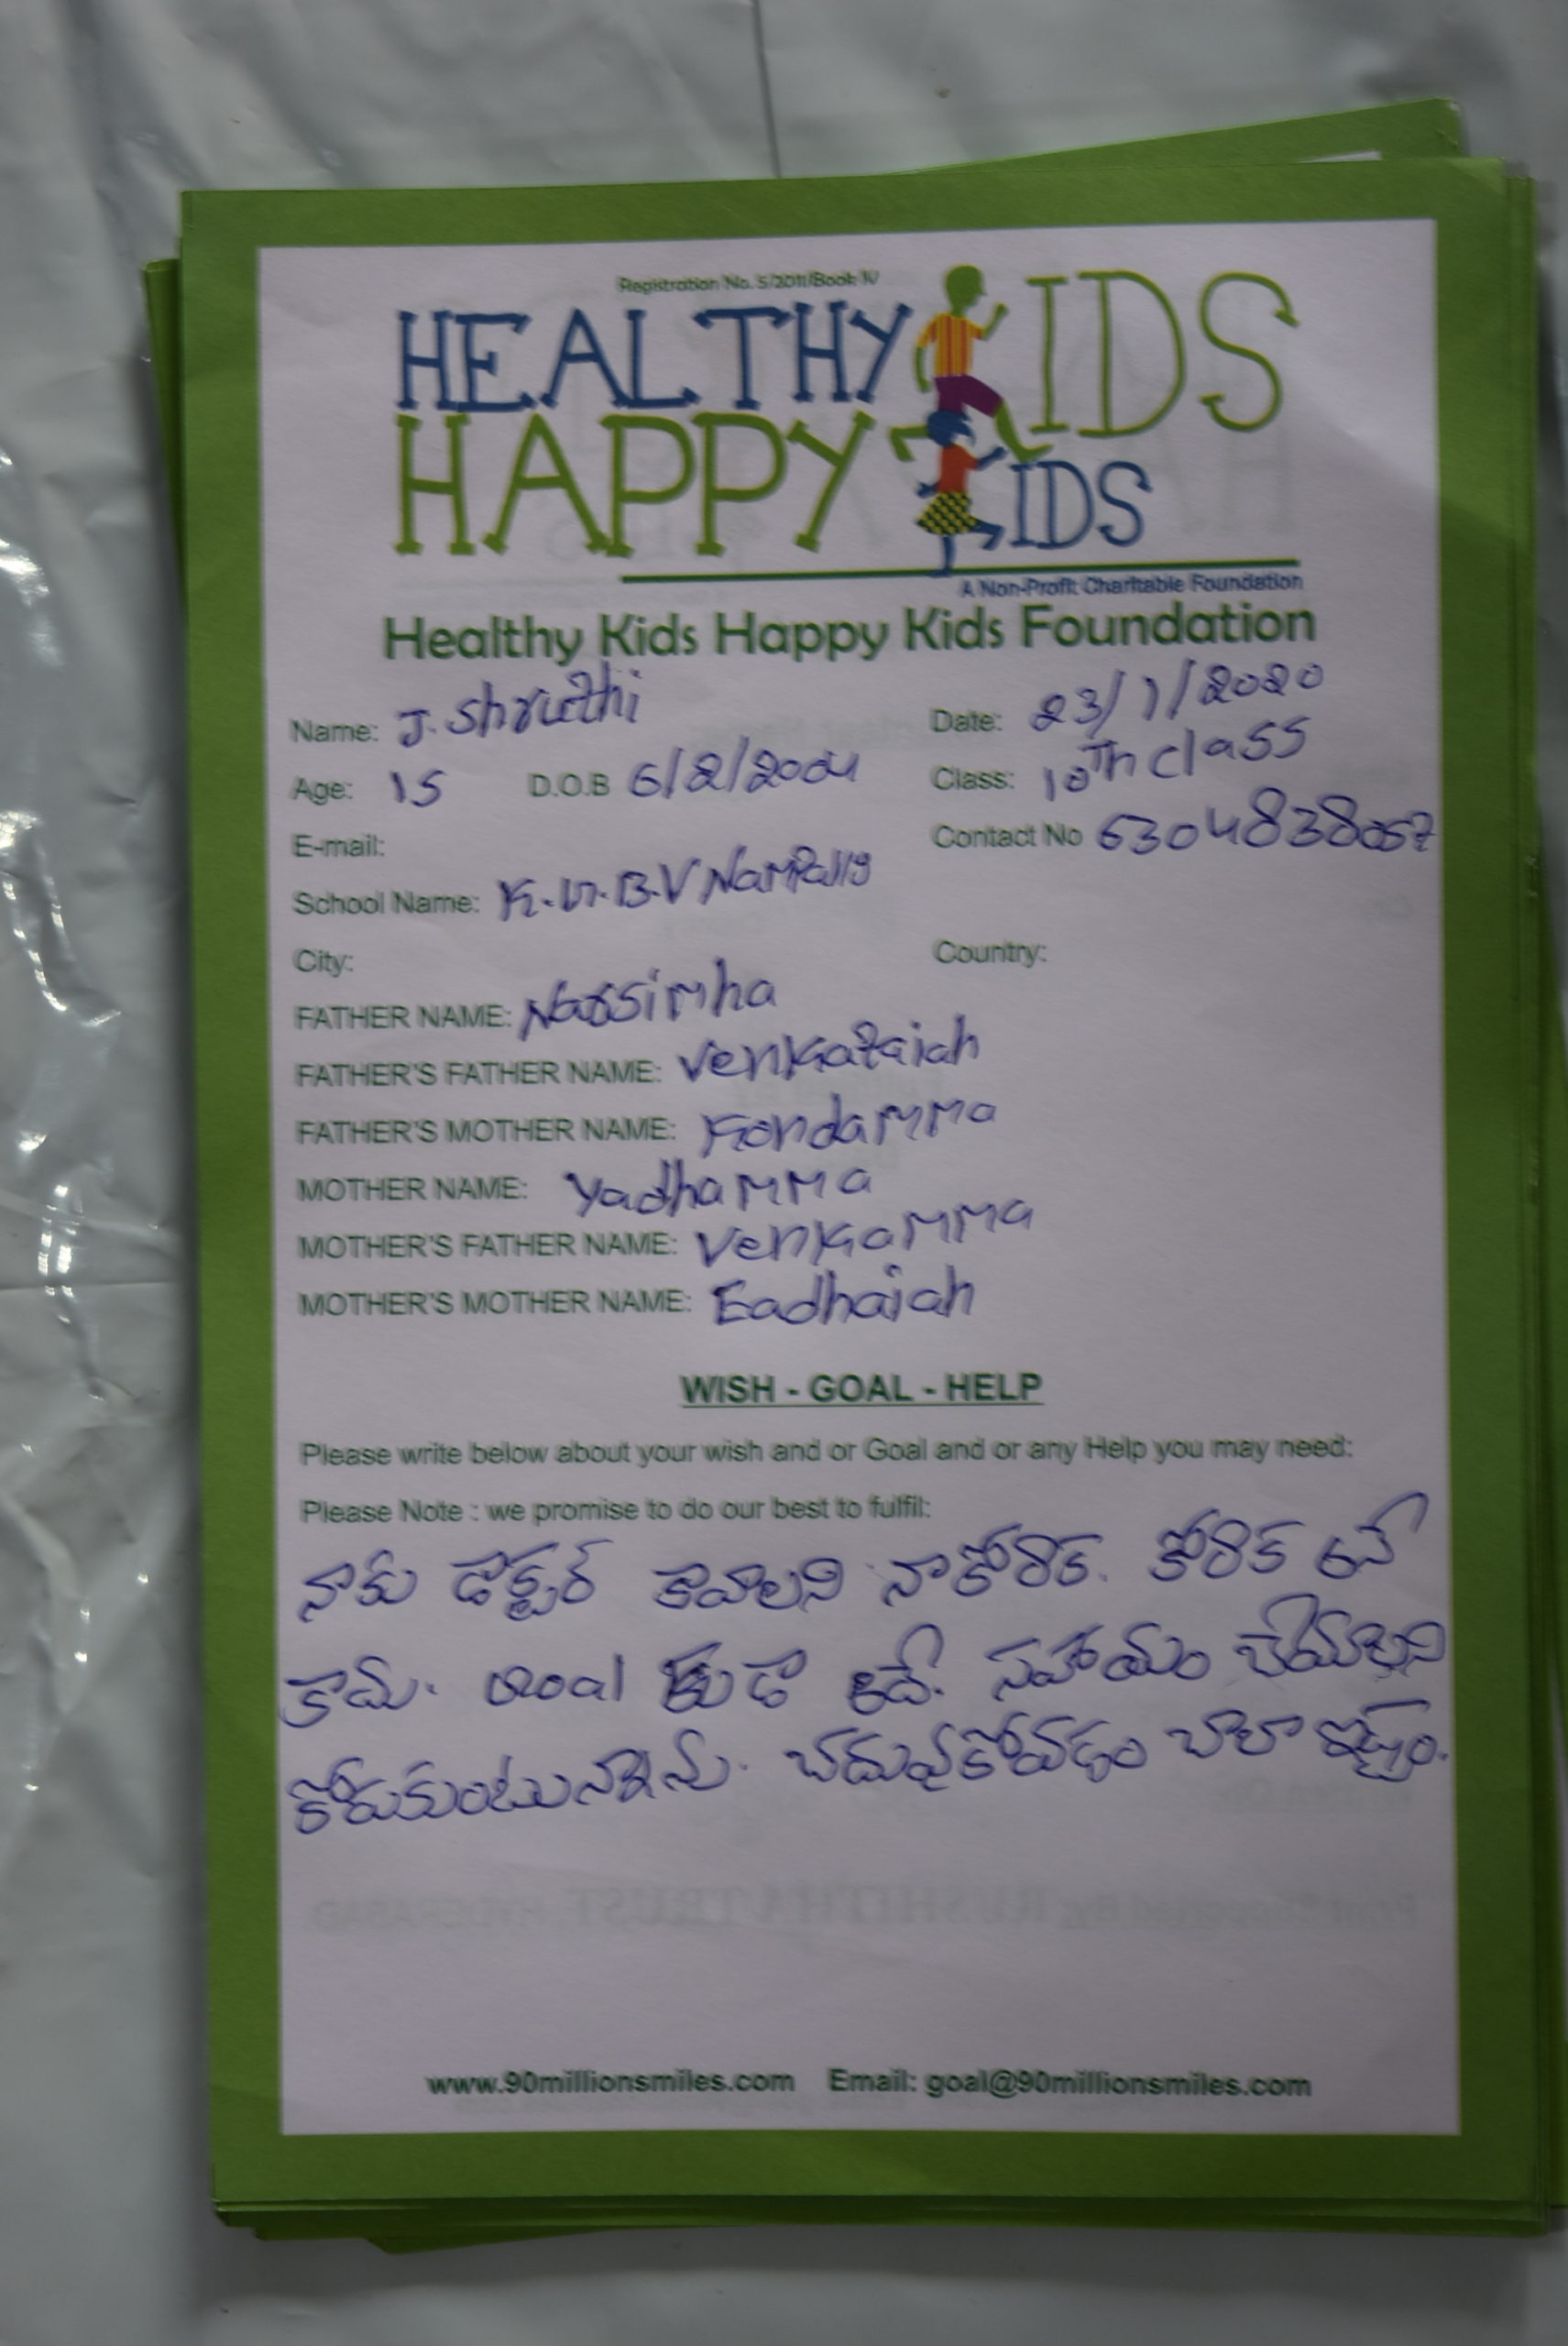 Registration No. 5/2011/Book IV
HEALTHY KIDS
HAPPY KIDS
A Non-Profit Charitable Foundation
Healthy Kids Happy Kids Foundation
Name: J. Shruthi Date: 23/1/2020
Age: 15 D.O.B 6/2/2004 Class: 10Th class
E-mail: Contact No 6304838057
School Name: K.G.B.V Nampally
City: Country:
FATHER NAME: Narsimha
FATHER'S FATHER NAME: Venkataiah
FATHER'S MOTHER NAME: Kondamma
MOTHER NAME: Yadhamma
MOTHER'S FATHER NAME: Venkamma
MOTHER'S MOTHER NAME: Eadhaiah
WISH - GOAL - HELP
Please write below about your wish and or Goal and or any Help you may need:
Please Note : we promise to do our best to fulfil:
నాకు డాక్టర్ కావాలని నా కోరిక. కోరిక అనే
కాదు. Goal కుడా ఇదే. సహాయం చేయాలని
కోరుకుంటున్నాను. చదువుకోవడం చాలా ఇష్టం.
www.90millionsmiles.com Email: goal@90millionsmiles.com